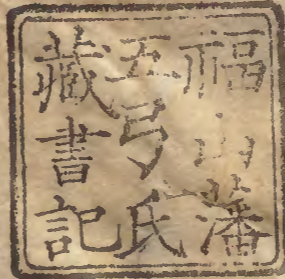 福山藩
五弓氏
藏書記